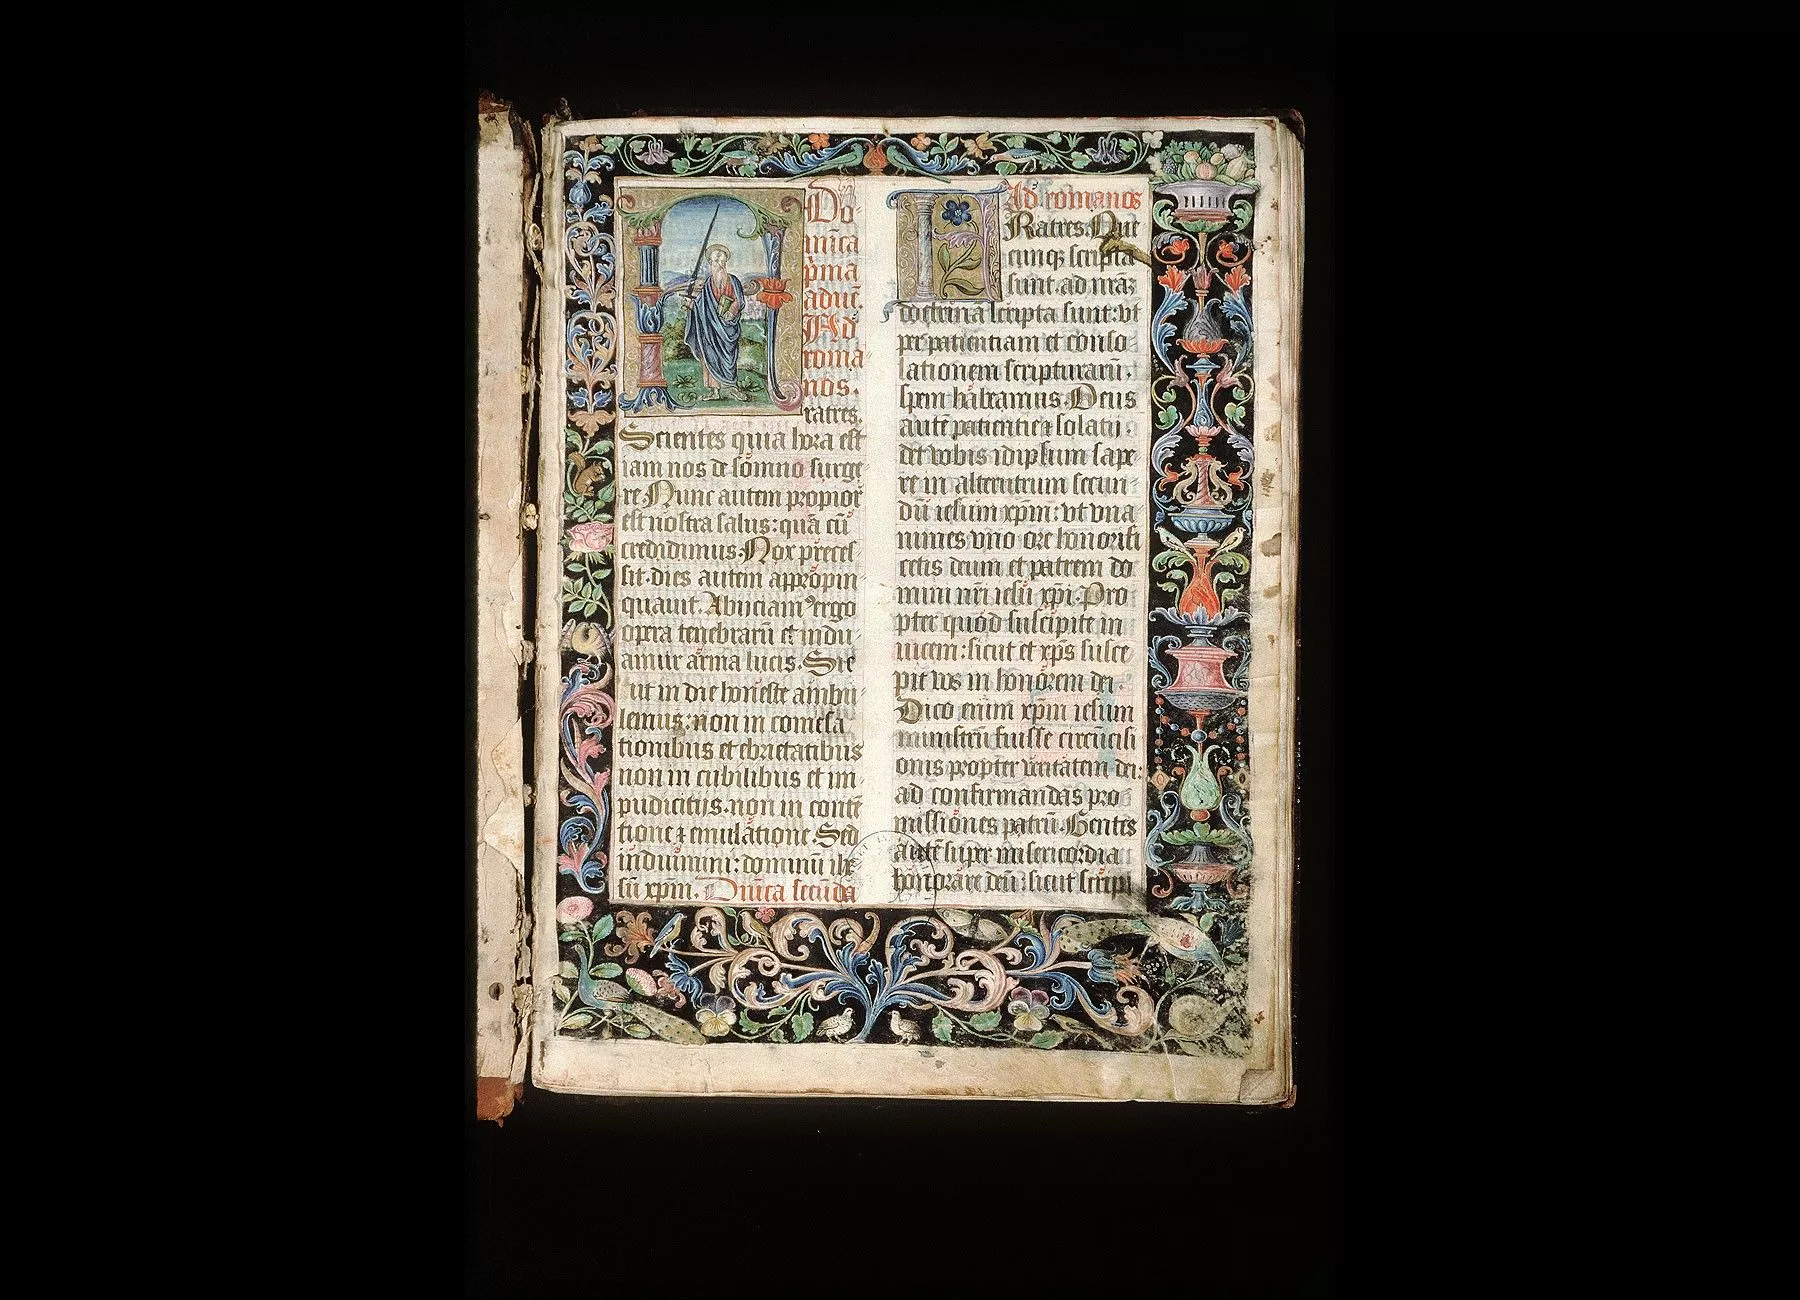 Do-
mīca
p̄ma
aduē.
Ad
roma-
nos.
Fratres.
Scientes quia hora est
iam nos de somno surge-
re. Nunc autem propior
est nostra salus: quā cū
credidimus. Nox preces-
sit. dies autem appropin-
quauit. Abijciamꝰ ergo
opera tenebrarū et indu-
amur arma lucis. Sic
ut in die honeste ambu-
lemus: non in comessa
tionibus et ebrietatibus
non in cubilibus et im-
pudicitijs. non in contē
tione ⁊ emulatione. Sed
induimini: dominū ihe
sū xp̄m. Dn̄ica secūda
Ad romanos
Fratres. Que
cunqꝫ scripta
sunt ad nr̄aꝫ
doctrina scripta sunt: vt
per patientiam et conso-
lationem scripturarū.
spem habeamus. Deus
autē patientie ⁊ solatij.
det vobis idipsum sape-
re in alterutrum secun-
dū iesum xp̄m: vt vna
nimes vno ore honorifi
cetis deum et patrem do
mini nr̄i iesu xp̄i. Pro
pter quod suscipite in
uicem: sicut et xp̄s susce
pit vos in honorem dei.
Dico enim xp̄m iesum
ministrū fuisse circūcisi
onis propter veritatem dei:
ad confirmandas pro
missiones patrū. Gentes
autē super misericordia
honorare deū: sicut script